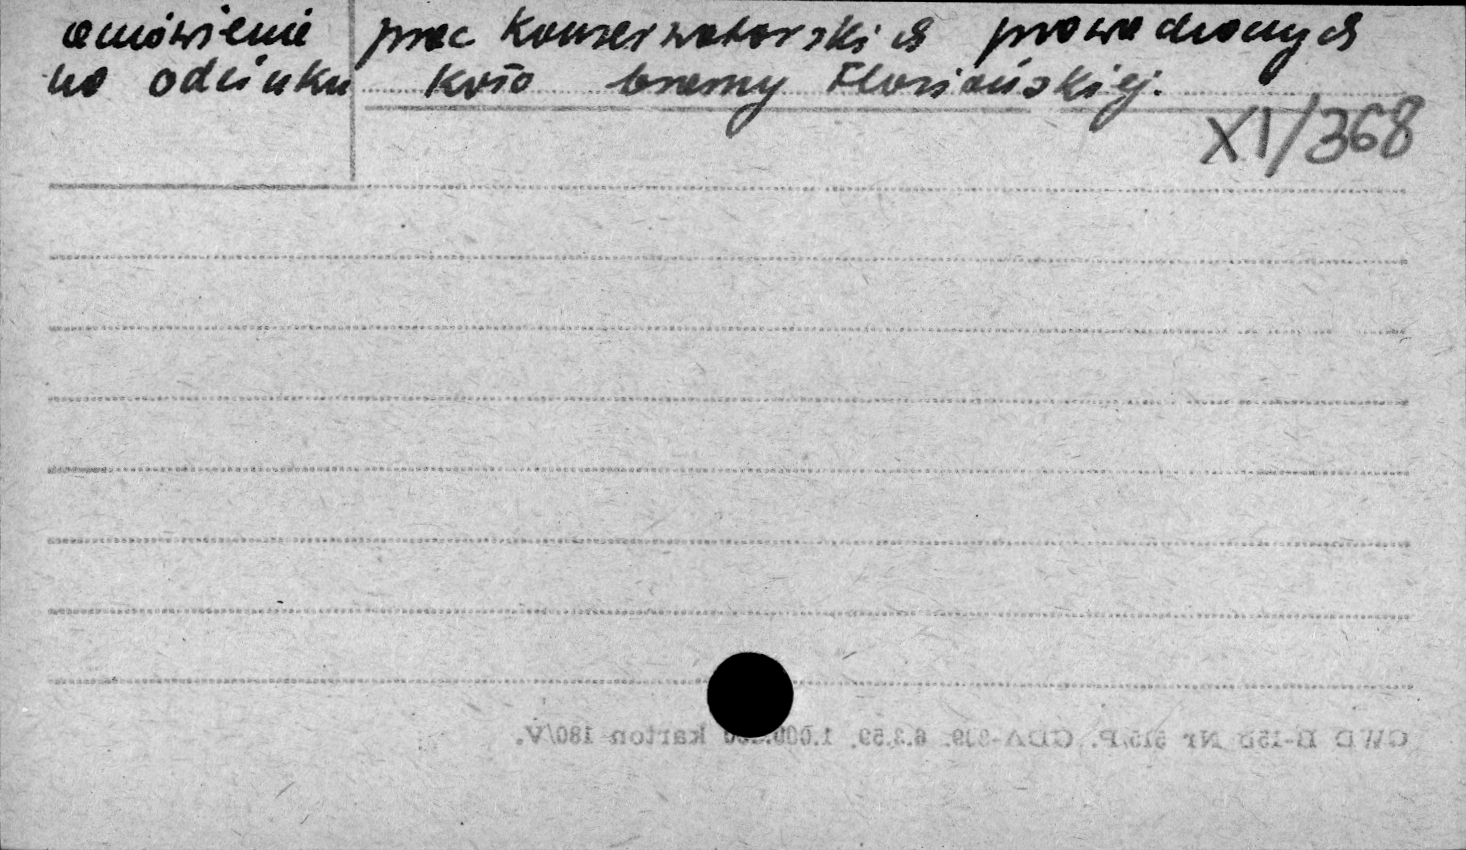 omówienie prac konserwatorskich prowadzonych
na odcinku koło bramy Floriańskiej.
XI/368
GWD D-15b Nr 515/P. GDA- 6.3.59. 1.000.000 karton 180/V.